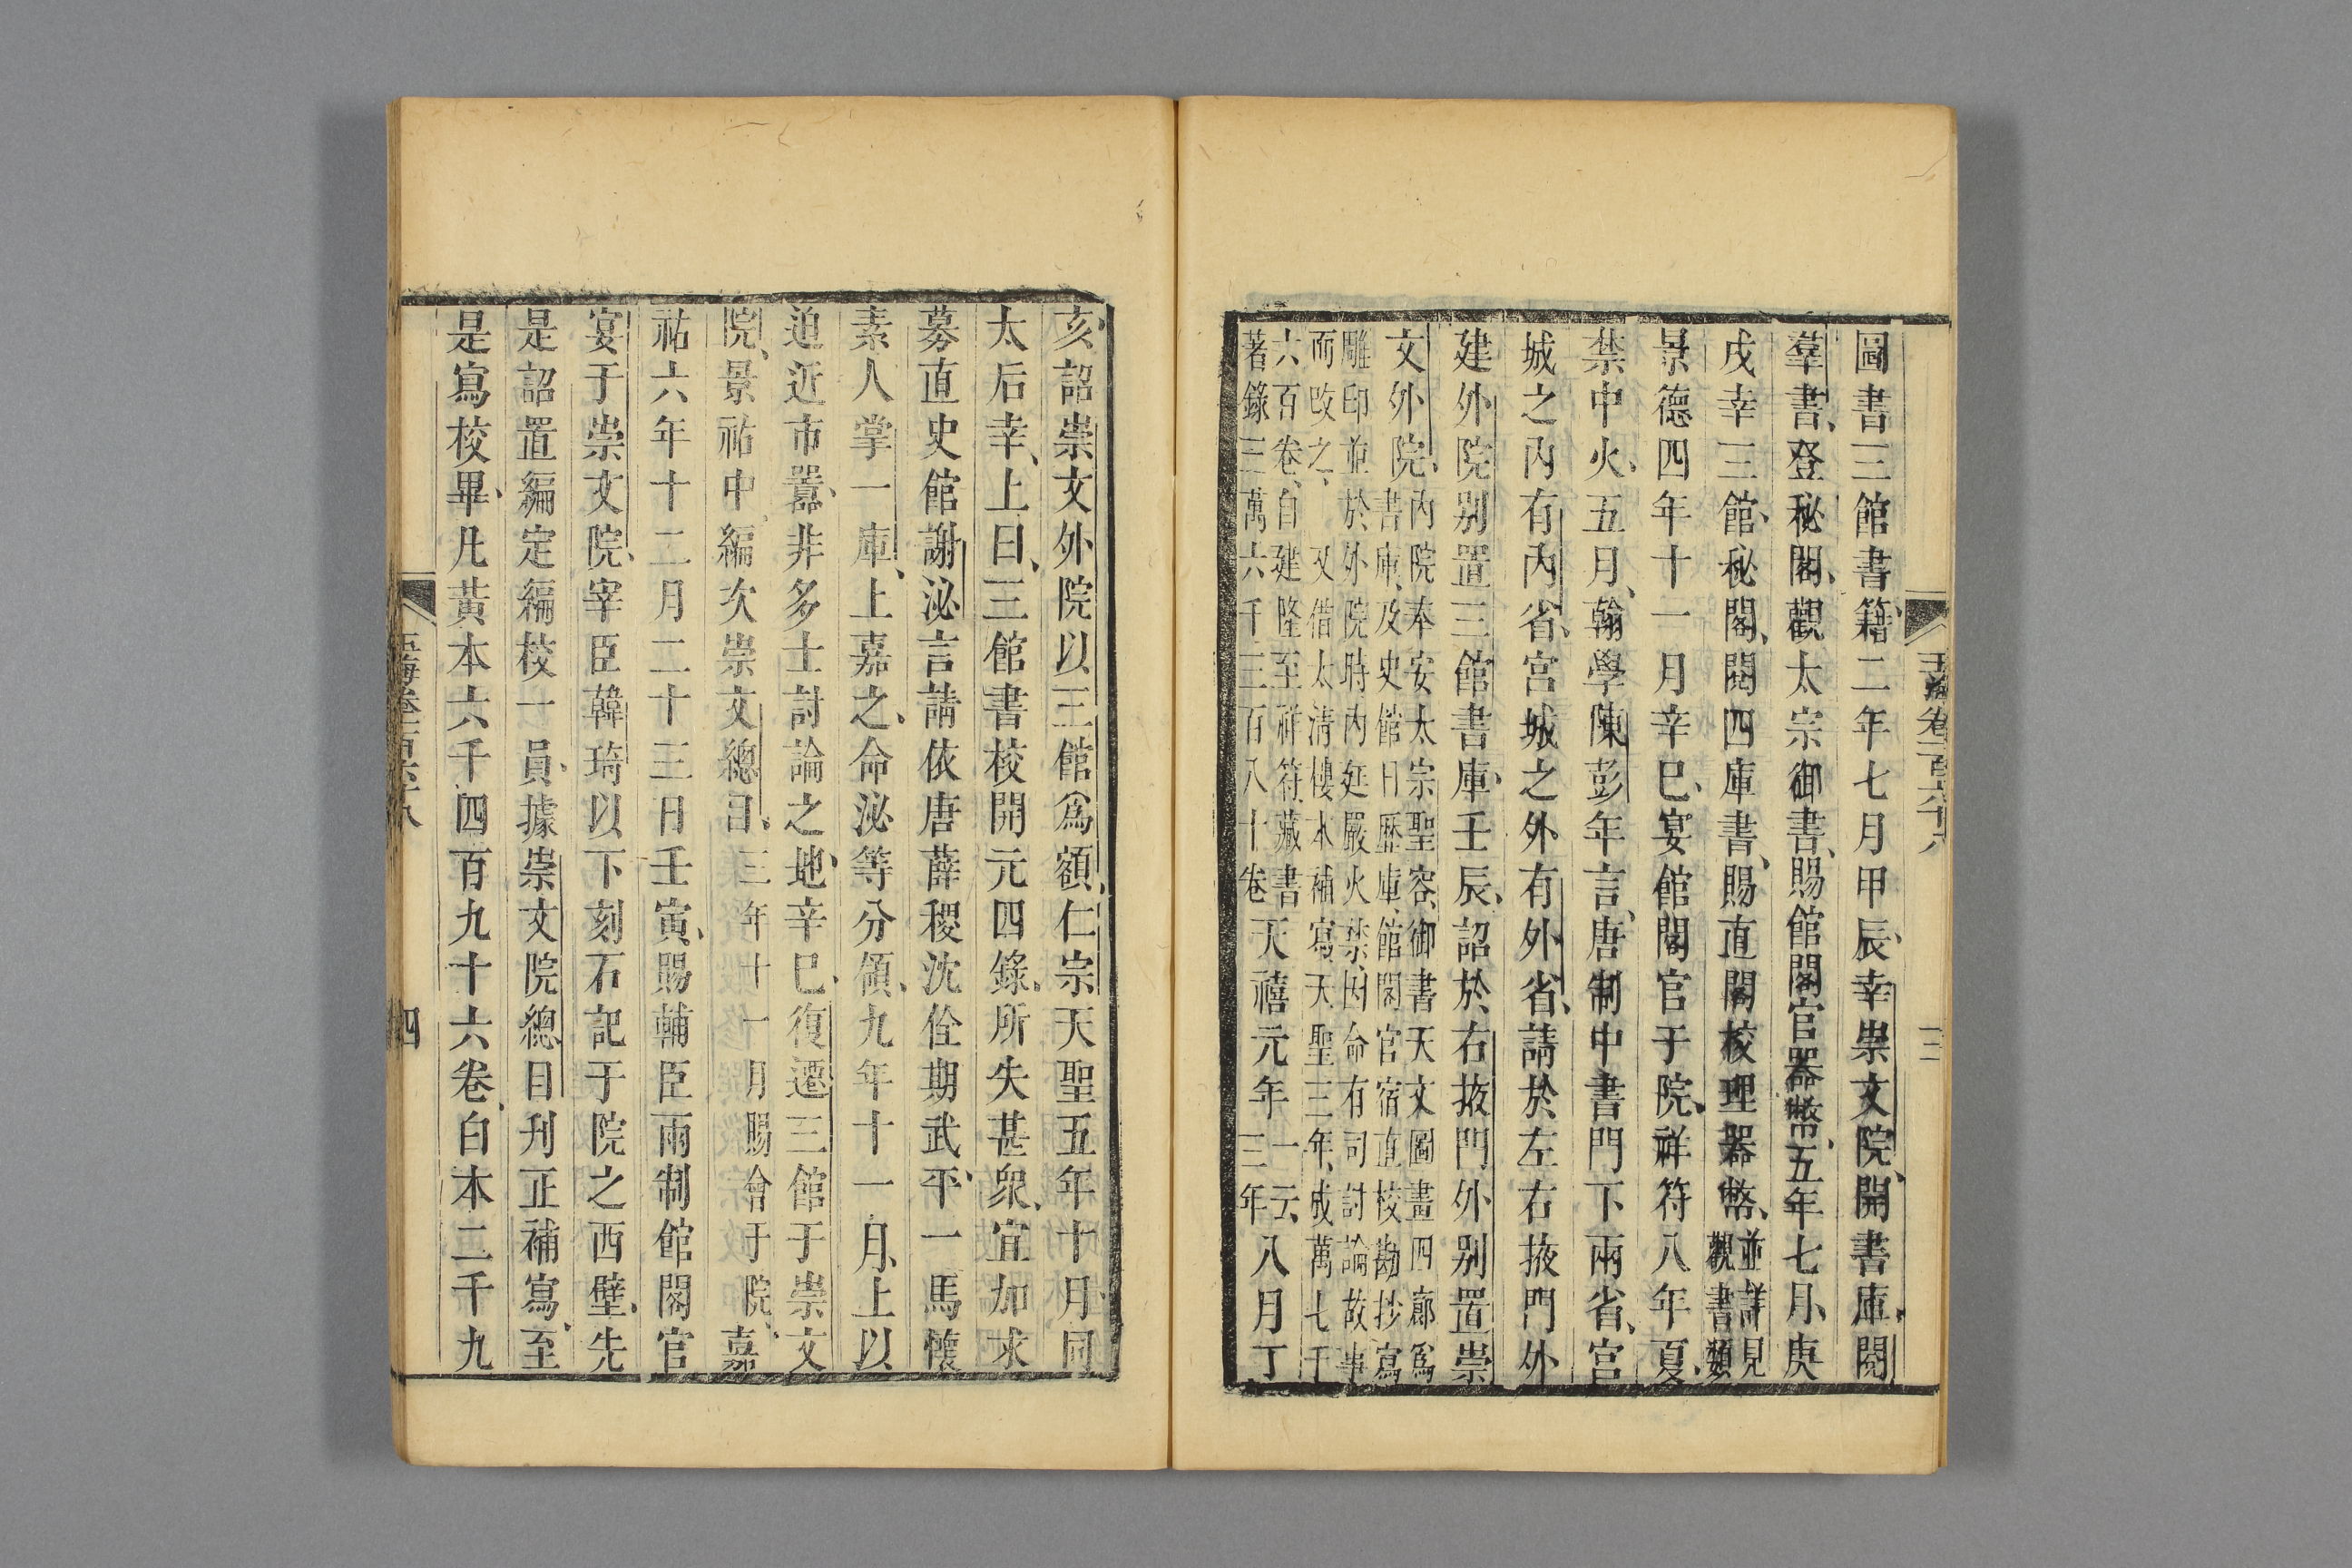 玉海卷一百六十八
三
圖書三館書籍二年七月甲辰幸崇文院開書庫閱
羣書登秘閣觀太宗御書賜館閣官器幣五年七月庚
戌幸三館秘閣閱四庫書賜直閣校理器幣並詳見觀書類
景德四年十一月辛巳宴館閣官于院祥符八年夏
禁中火五月翰學陳彭年言唐制中書門下兩省宫
城之内有内省宫城之外有外省請於左右掖門外
建外院别置三館書庫壬辰詔於右掖門外别置崇
文外院内院奉安太宗聖容御書天文圖畫四廊爲
書庫及史館日歴庫館閣官宿直校勘抄寫
雕印並於外院時内廷嚴火禁因命有司討論故事
而攺之又借太清樓本補寫天聖三年成萬七千
六百卷自建隆至祥符藏書
著錄三萬六千三百八十卷天禧元年一云三年八月丁
亥詔崇文外院以三館爲額仁宗天聖五年十月同
太后幸上曰三館書校開元四錄所失甚衆宜加求
募直史館謝泌言請依唐薛稷沈佺期武平一馬懷
素人掌一庫上嘉之命泌等分領九年十一月上以
迫近市囂非多士討論之地辛巳復遷三館于崇文
院景祐中編次崇文總目三年十一月賜會于院嘉
祐六年十二月二十三日壬寅賜輔臣兩制館閣官
宴于崇文院宰臣韓琦以下刻石記于院之西壁先
是詔置編定編校一員據崇文院總目刋正補寫至
是寫校畢凡黃本六千四百九十六卷白本二千九
玉海卷一百六十八
四